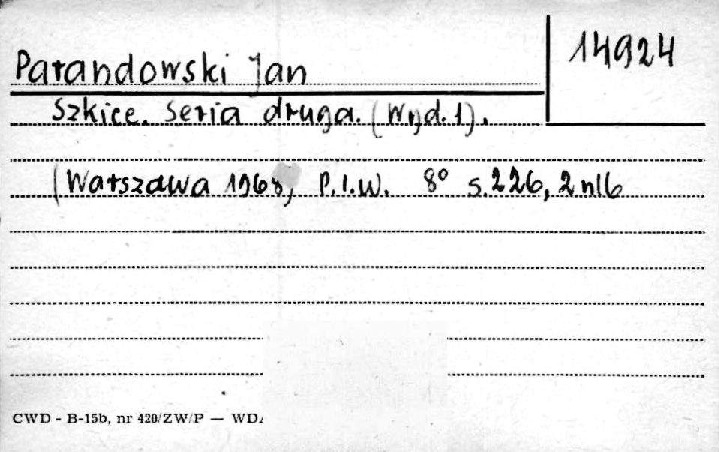 14924
Parandowski Jan
Szkice. Seria druga. (Wyd. 1).
(Warszawa 1968, P.I.W. 8° s.226, 2 nlb
CWD - B-15b, nr 420/ZW/P — WD